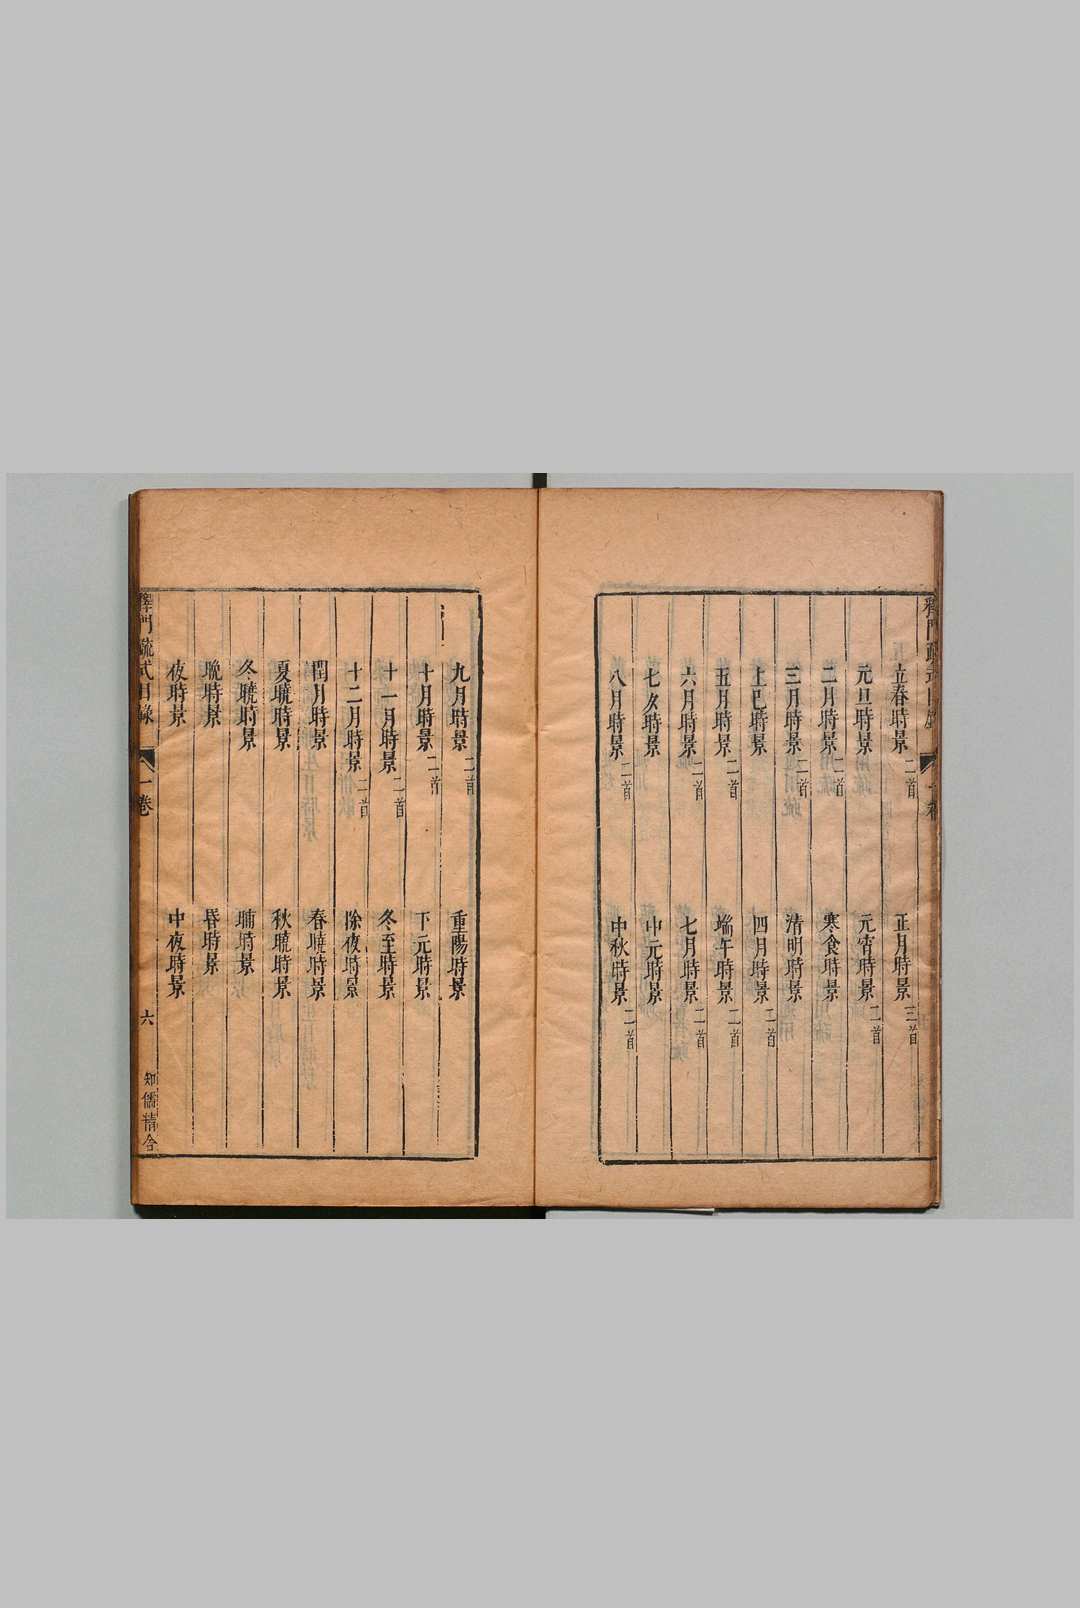 立春時景二首　正月時景三首
元旦時景　元宵時景二首
二月時景二首　寒食時景
三月時景二首　清明時景
上巳時景　四月時景二首
五月時景二首　端午時景二首
六月時景二首　七月時景二首
七夕時景　中元時景
八月時景二首　中秋時景二首
九月時景二首　重陽時景
十月時景二首　下元時景
十一月時景二首　冬至時景
十二月時景二首　除夜時景
閏月時景　春曉時景
夏曉時景　秋曉時景
冬曉時景　晡時景
晩時景　昏時景
夜時景　中夜時景
釋門疏式目錄　一卷　六　知儒精舍